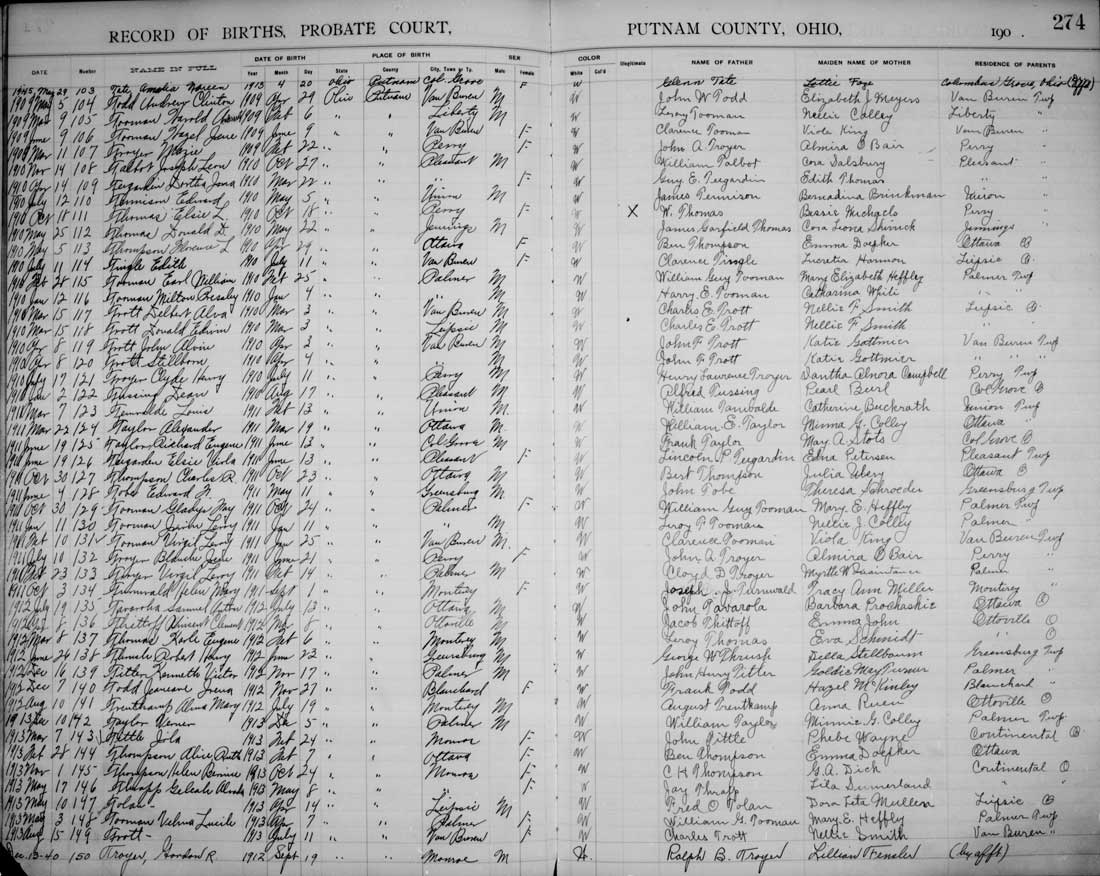 274
RECORD OF BIRTHS, PROBATE COURT, PUTNAM COUNTY, OHIO, 190 .
DATE Number NAME IN FULL DATE OF BIRTH PLACE OF BIRTH SEX COLOR Illegitimate NAME OF FATHER MAIDEN NAME OF MOTHER RESIDENCE OF PARENTS
Year Month Day State County City, Town or Tp. Male Female White Col'd
1945 May 29 103 Tate Amolia Noreen 1913 4 20 Ohio Putnam Col. Grove F W Glenn Tate Lottie Columbus Grove, Ohio
1909 5 104 Todd Andrew Clinton 1909 Apr 29 Ohio Putnam Van Buren M W John W Todd Elizabeth J Meyers Van Buren Twp
1909 9 105 Tooman Harold 1909 6 " " Liberty M W Leroy Tooman Nellie Colley Liberty "
1909 June 9 106 Tooman Hazel June 1909 June 9 " " Van Buren F W Clarence Tooman Viola King Van Buren "
11 107 Troyer Marie 1909 22 " " Perry F W John A Troyer Almira O Bair Perry "
1910 Nov 14 108 Talbot Joseph Leon 1910 Oct 27 " " Pleasant M W William Talbot Cora Salsbury Pleasant "
1910 Apr 14 109 Teegarden 1910 Mar 22 " " " F W Guy E. Teegardin Edith Thomas " "
1910 July 12 110 Tennison Edward 1910 May 5 " " Union M W James Tennison Bernadina Brinckman Union "
1910 Oct 18 111 Thomas Elsie L. 1910 Oct 18 " " Perry F W X W. Thomas Bessie Michaels Perry "
1910 May 25 112 Thomas Donald D. 1910 May 22 " " Jennings M W James Garfield Thomas Cora Leona Shirick Jennings "
1910 May 5 113 Thompson Florence L 1910 Apr 29 " " Ottawa F W Ben Thompson Emma Doepker Ottawa
1910 July 11 114 Tingle Edith 1910 July 11 " " Van Buren F W Clarence Tingle Lucretia Harmon Leipsic
28 115 Tooman Earl William 1910 25 " " Palmer M W William Guy Tooman Mary Elizabeth Heffley Palmer Twp
1910 Jan 12 116 Tooman Milton Presley 1910 Jan 4 " " " M W Harry E. Tooman Catharina White " "
1910 Mar 15 117 Trott Delbert Alva 1910 Mar 3 " " Van Buren M W Charles E Trott Nellie F Smith Leipsic
1910 Mar 15 118 Trott Donald Edwin 1910 Mar 3 " " Leipsic M W Charles E Trott Nellie F Smith " "
1910 Apr 8 119 Trott John Alvin 1910 Apr 3 " " Van Buren M W John F Trott Katie Gottmier Van Buren Twp
1910 Apr 8 120 Trott Stillborn 1910 Apr 4 " " " M W John F Trott Katie Gottmier " " "
1910 July 17 121 Troyer Clyde Harry 1910 July 11 " " Perry M W Henry Lawrence Troyer Dantha Alnora Campbell Perry Twp
2 122 Tussing Dean 1910 Aug 17 " " Pleasant M W Alfred Tussing Pearl Burl Col Grove
1911 Mar 7 123 Louis 1911 13 " " Union M W William Catherine Buckrath Union Twp
1911 Mar 22 124 Taylor Alexander 1911 Mar 19 " " Ottawa M W William E. Taylor Minna G. Colley Ottawa "
1911 June 19 125 Taylor Richard Eugene 1911 June 13 " " Col Grove M W Frank Taylor May A Stots Col Grove
1911 June 19 126 Teegarden Elsie Viola 1911 June 13 " " Pleasant F W Lincoln P Teegardin Edna Petersen Pleasant Twp
1911 Oct 30 127 Thompson Charles R. 1911 Oct 23 " " Ottawa M W Bert Thompson Julia Ottawa
1911 June 4 128 Tobe Edward 1911 May 11 " " Greensburg M W John Tobe Theresa Schroeder Greensburg Twp
1911 Oct 30 129 Tooman Gladys May 1911 Oct 24 " " Palmer F W William Guy Tooman Mary. E. Heffley Palmer Twp
1911 Jan 11 130 Tooman Leroy 1911 Jan 11 " " " M W Leroy P Tooman Nellie J. Colley Palmer "
10 131 Tooman Virgil Leroy 1911 Jan 25 " " Van Buren M. W Clarence Tooman Viola King Van Buren Twp
1911 July 10 132 Troyer Blanche 1911 June 21 " " Perry F W John A Troyer Almira O Bair Perry "
23 133 Troyer Virgil Leroy 1911 14 " " Palmer M W Cloyd D Troyer Myrtle W Palmer "
1911 Oct 3 134 Helen Mary 1911 Sept 1 " " Monterey F W Joseph J. Tracy Ann Miller Monterey "
1912 July 19 135 Tavarola Samuel 1912 July 13 " " Ottawa M W John Tavarola Barbara Ottawa
8 136 Thithoff Vincent Clement 1912 8 " " Ottoville M W Jacob Thithoff Emma John Ottoville
1912 Mar 8 137 Thomas Karle Eugene 1912 6 " " Monterey M W Leroy Thomas Eva Schmidt "
1912 June 26 138 Thrush Robert Harry 1912 June 23 " " Greensburg M W George W Thrush Della Stellbaum Greensburg Twp
1912 Dec 16 139 Titter Kenneth Victor 1912 Nov 17 " " Palmer M W John Harry Titter Goldie May Palmer "
1912 Dec 7 140 Todd 1912 Nov 27 " " Blanchard F W Frank Todd Hazel McKinley Blanchard "
1912 Aug 10 141 Trentkamp Alma Mary 1912 July 19 " " Monterey M W August Trentkamp Anna Ottoville
1913 10 142 Taylor Verner 1913 5 " " Palmer M W William Taylor Minnie G. Colley Palmer Twp
1913 Mar 7 143 Tittle Lola 1913 24 " " Monroe F W John Tittle Phebe Wayne Continental
1913 28 144 Thompson Alice Ruth 1913 7 " " Ottawa F W Ben Thompson Emma Doepker Ottawa
1913 Nov 1 145 Thompson Helen Bernice 1913 Oct 24 " " Monroe F W C H Thompson G. A. Dick Continental
1913 May 17 146 Thrapp 1913 May 8 " " " F W Jay Thrapp Lita Sunnerland "
1913 May 10 147 Tolan - 1913 Apr 14 " " Leipsic M W Fred O Tolan Dora Leta Mullens Leipsic
1913 May 3 148 Tooman Velma Lucile 1913 Apr 7 " " Palmer F W William G. Tooman Mary E. Heffly Palmer Twp
1913 Aug 15 149 Trott - 1913 July 11 " " Van Buren F W Charles Trott Nellie Smith Van Buren "
Dec. 13-40 150 Troyer, Gordon R. 1912 Sept 19 " " Monroe M W. Ralph B. Troyer Lillian Fensler (by afft)